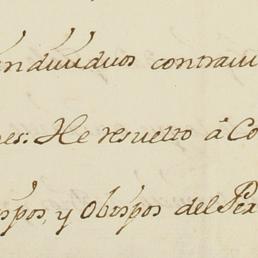 individuos contravi
es: He resuelto à Co
spõs, y Obispos del Per